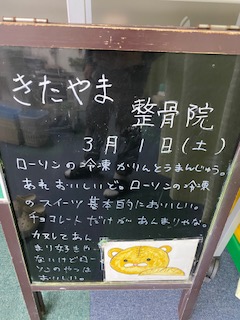 きたやま
整骨院
3月1日(土)
ローソンの冷凍かりんとうまんじゅう。
あれおいしいど。ローソンの冷凍
のスイーツ基本的においしい。
チョコレートだけがあんまりやな。
カヌレてあん
まり好きや
ないけどロー
ソンのやつは
おいしい。